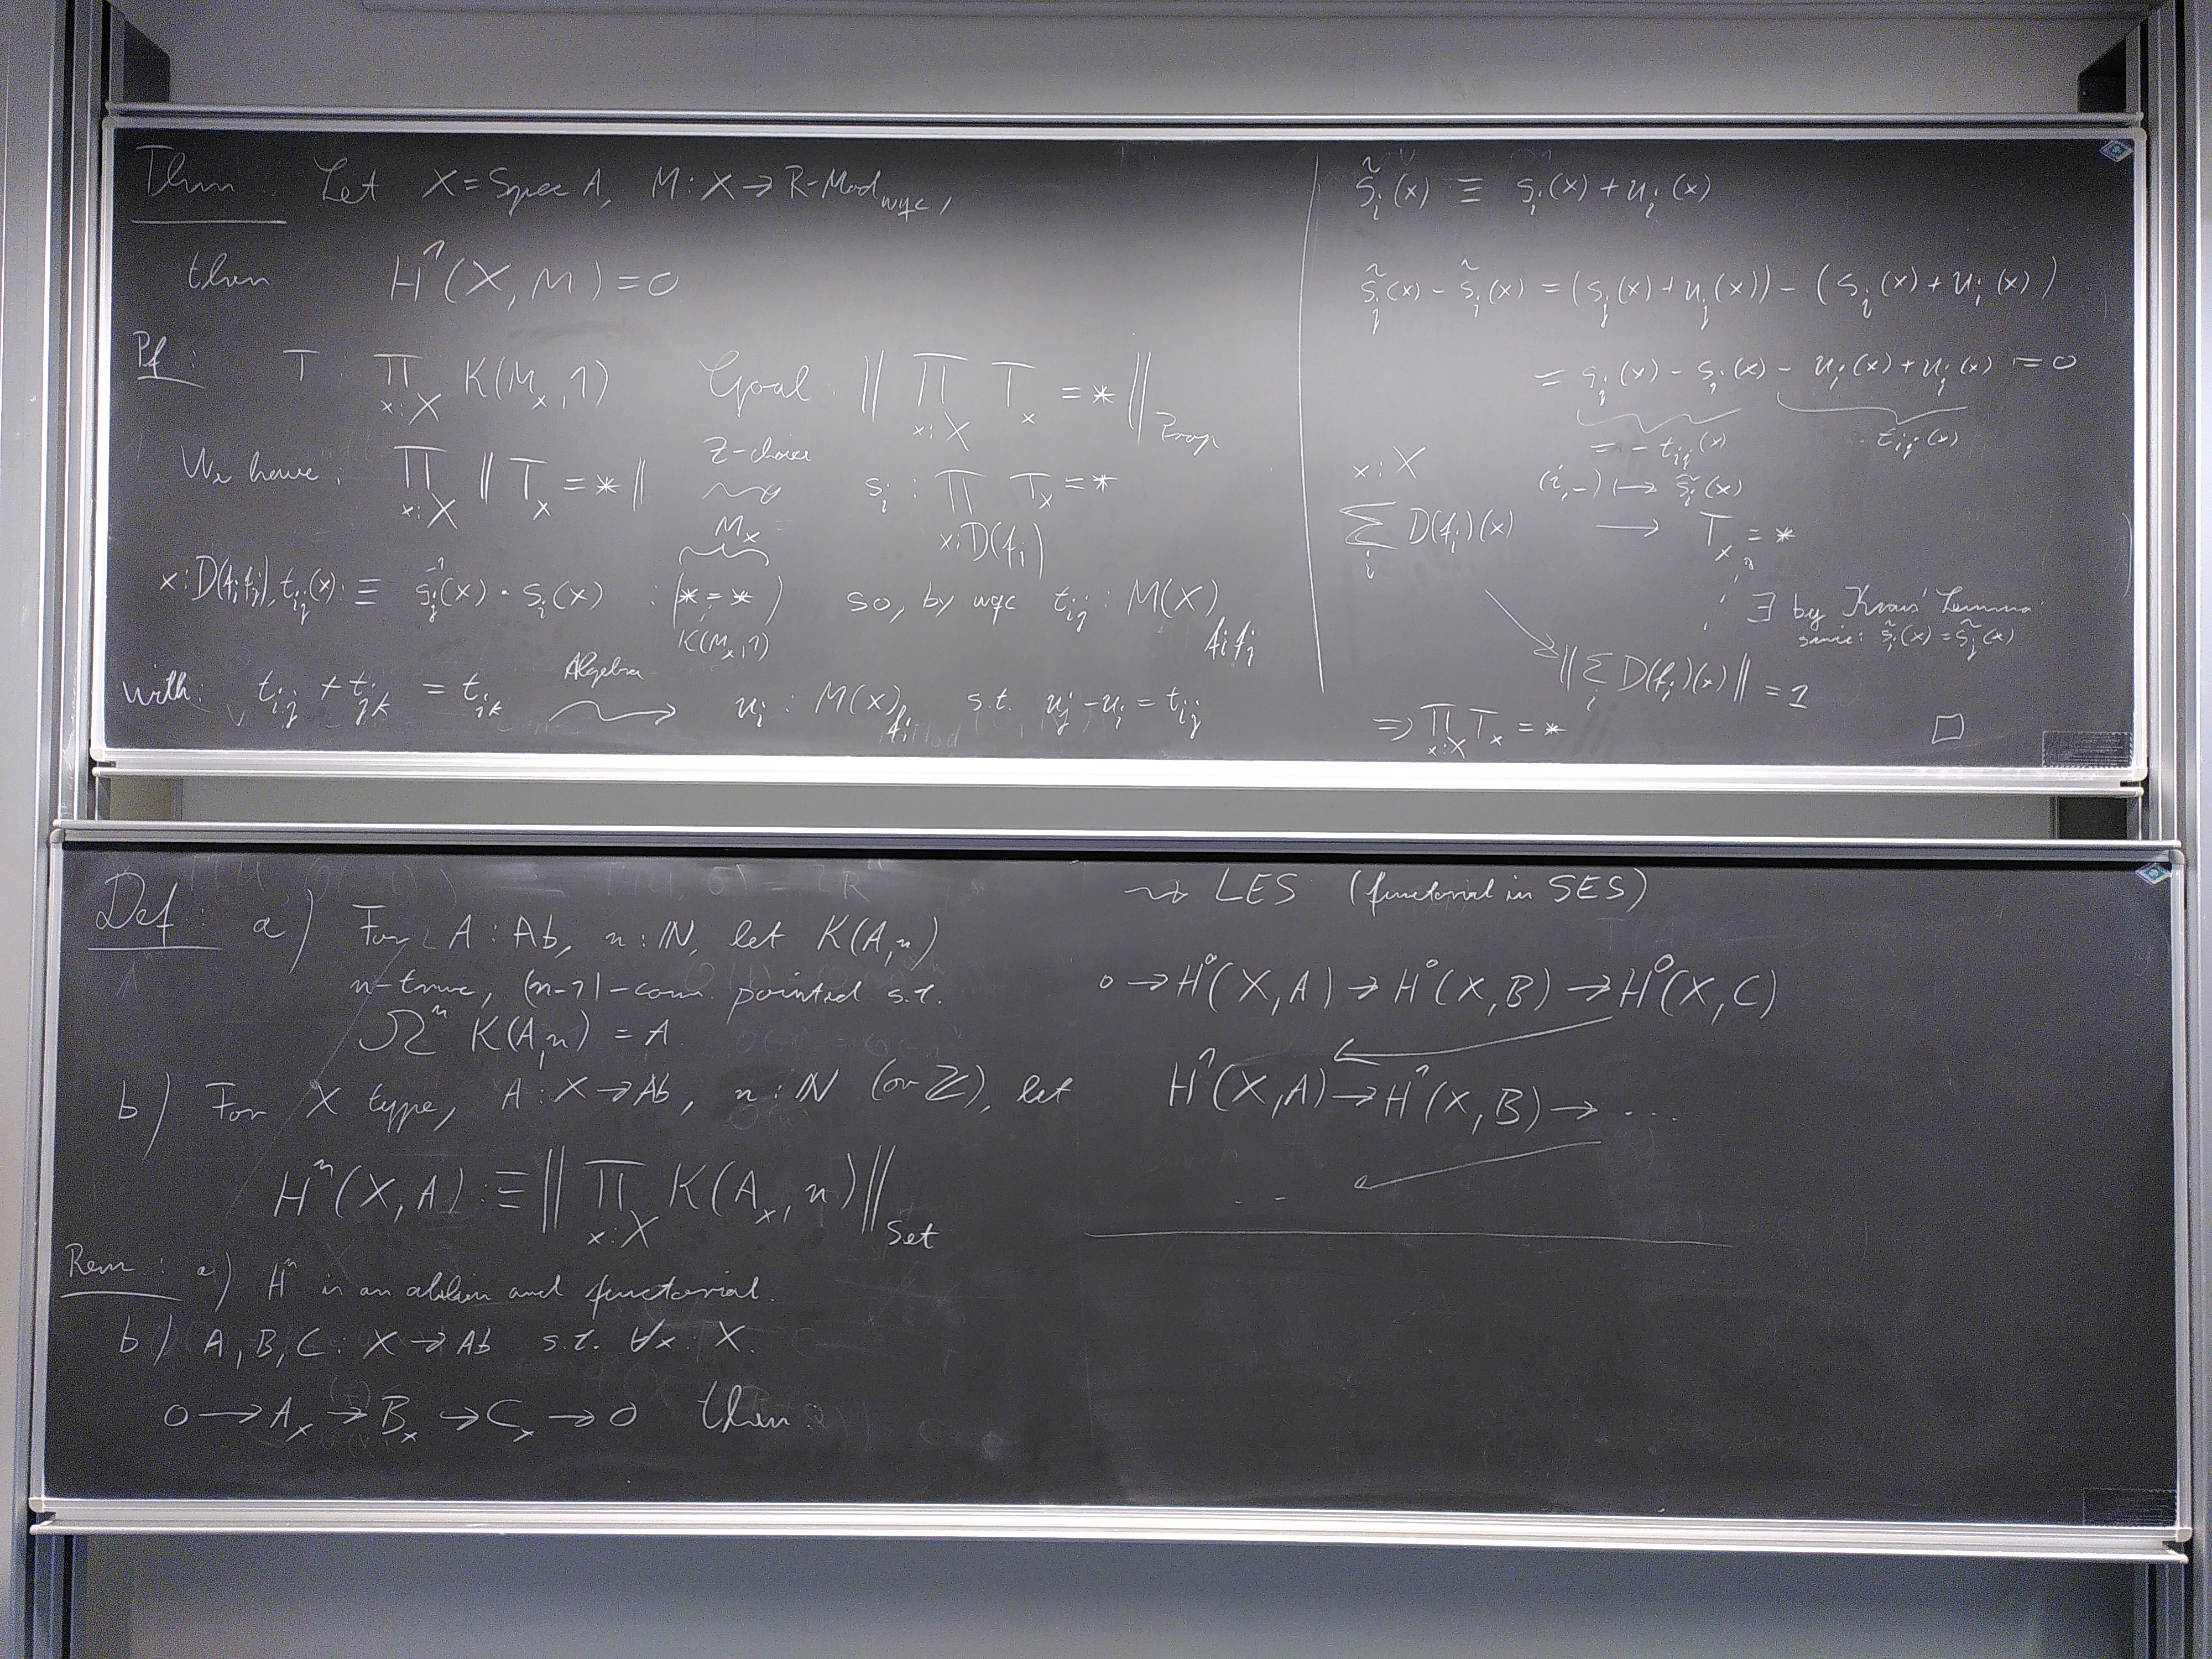 Thm : Let X = Spec A, M : X → R-Mod_wqc,
then H^1(X, M) = 0
Pf : T : ∏_{x:X} K(M_x, 1) Goal : ‖ ∏_{x:X} T_x = * ‖_Prop
We have : ∏_{x:X} ‖ T_x = * ‖ Z-choice ⇝ s_i : ∏_{x:D(f_i)} T_x = *
x : D(f_i f_j), t_ij(x) :≡ s_j^{-1}(x) · s_i(x) : (* =_{K(M_x,1)} *) M_x so, by wqc t_ij : M(X)_{f_i f_j}
with : t_ij + t_jk = t_ik Algebra ⇝ u_i : M(X)_{f_i} s.t. u_j - u_i = t_ij
s̃_i(x) ≡ s_i(x) + u_i(x)
s̃_j(x) - s̃_i(x) = (s_j(x) + u_j(x)) - (s_i(x) + u_i(x))
= s_j(x) - s_i(x) - u_i(x) + u_j(x) = 0
= - t_ij(x) t_ij(x)
x : X
(i, -) ↦ s̃_i(x)
∑_i D(f_i)(x) → T_x = *
∃ by Kraus' Lemma
since : s̃_i(x) = s̃_j(x)
‖ ∑_i D(f_i)(x) ‖ = 1
⇒ ∏_{x:X} T_x = * □
Def : a) For A : Ab, n : ℕ, let K(A, n)
n-trunc, (n-1)-conn. pointed s.t.
Ω^n K(A, n) = A
b) For X type, A : X → Ab, n : ℕ (or ℤ), let
H^n(X, A) :≡ ‖ ∏_{x:X} K(A_x, n) ‖_Set
Rem : a) H^n is an abelian and functorial.
b) A, B, C : X → Ab s.t. ∀x : X.
0 → A_x → B_x → C_x → 0 then :
⇝ LES (functorial in SES)
0 → H^0(X, A) → H^0(X, B) → H^0(X, C)
H^1(X, A) → H^1(X, B) → ...
...